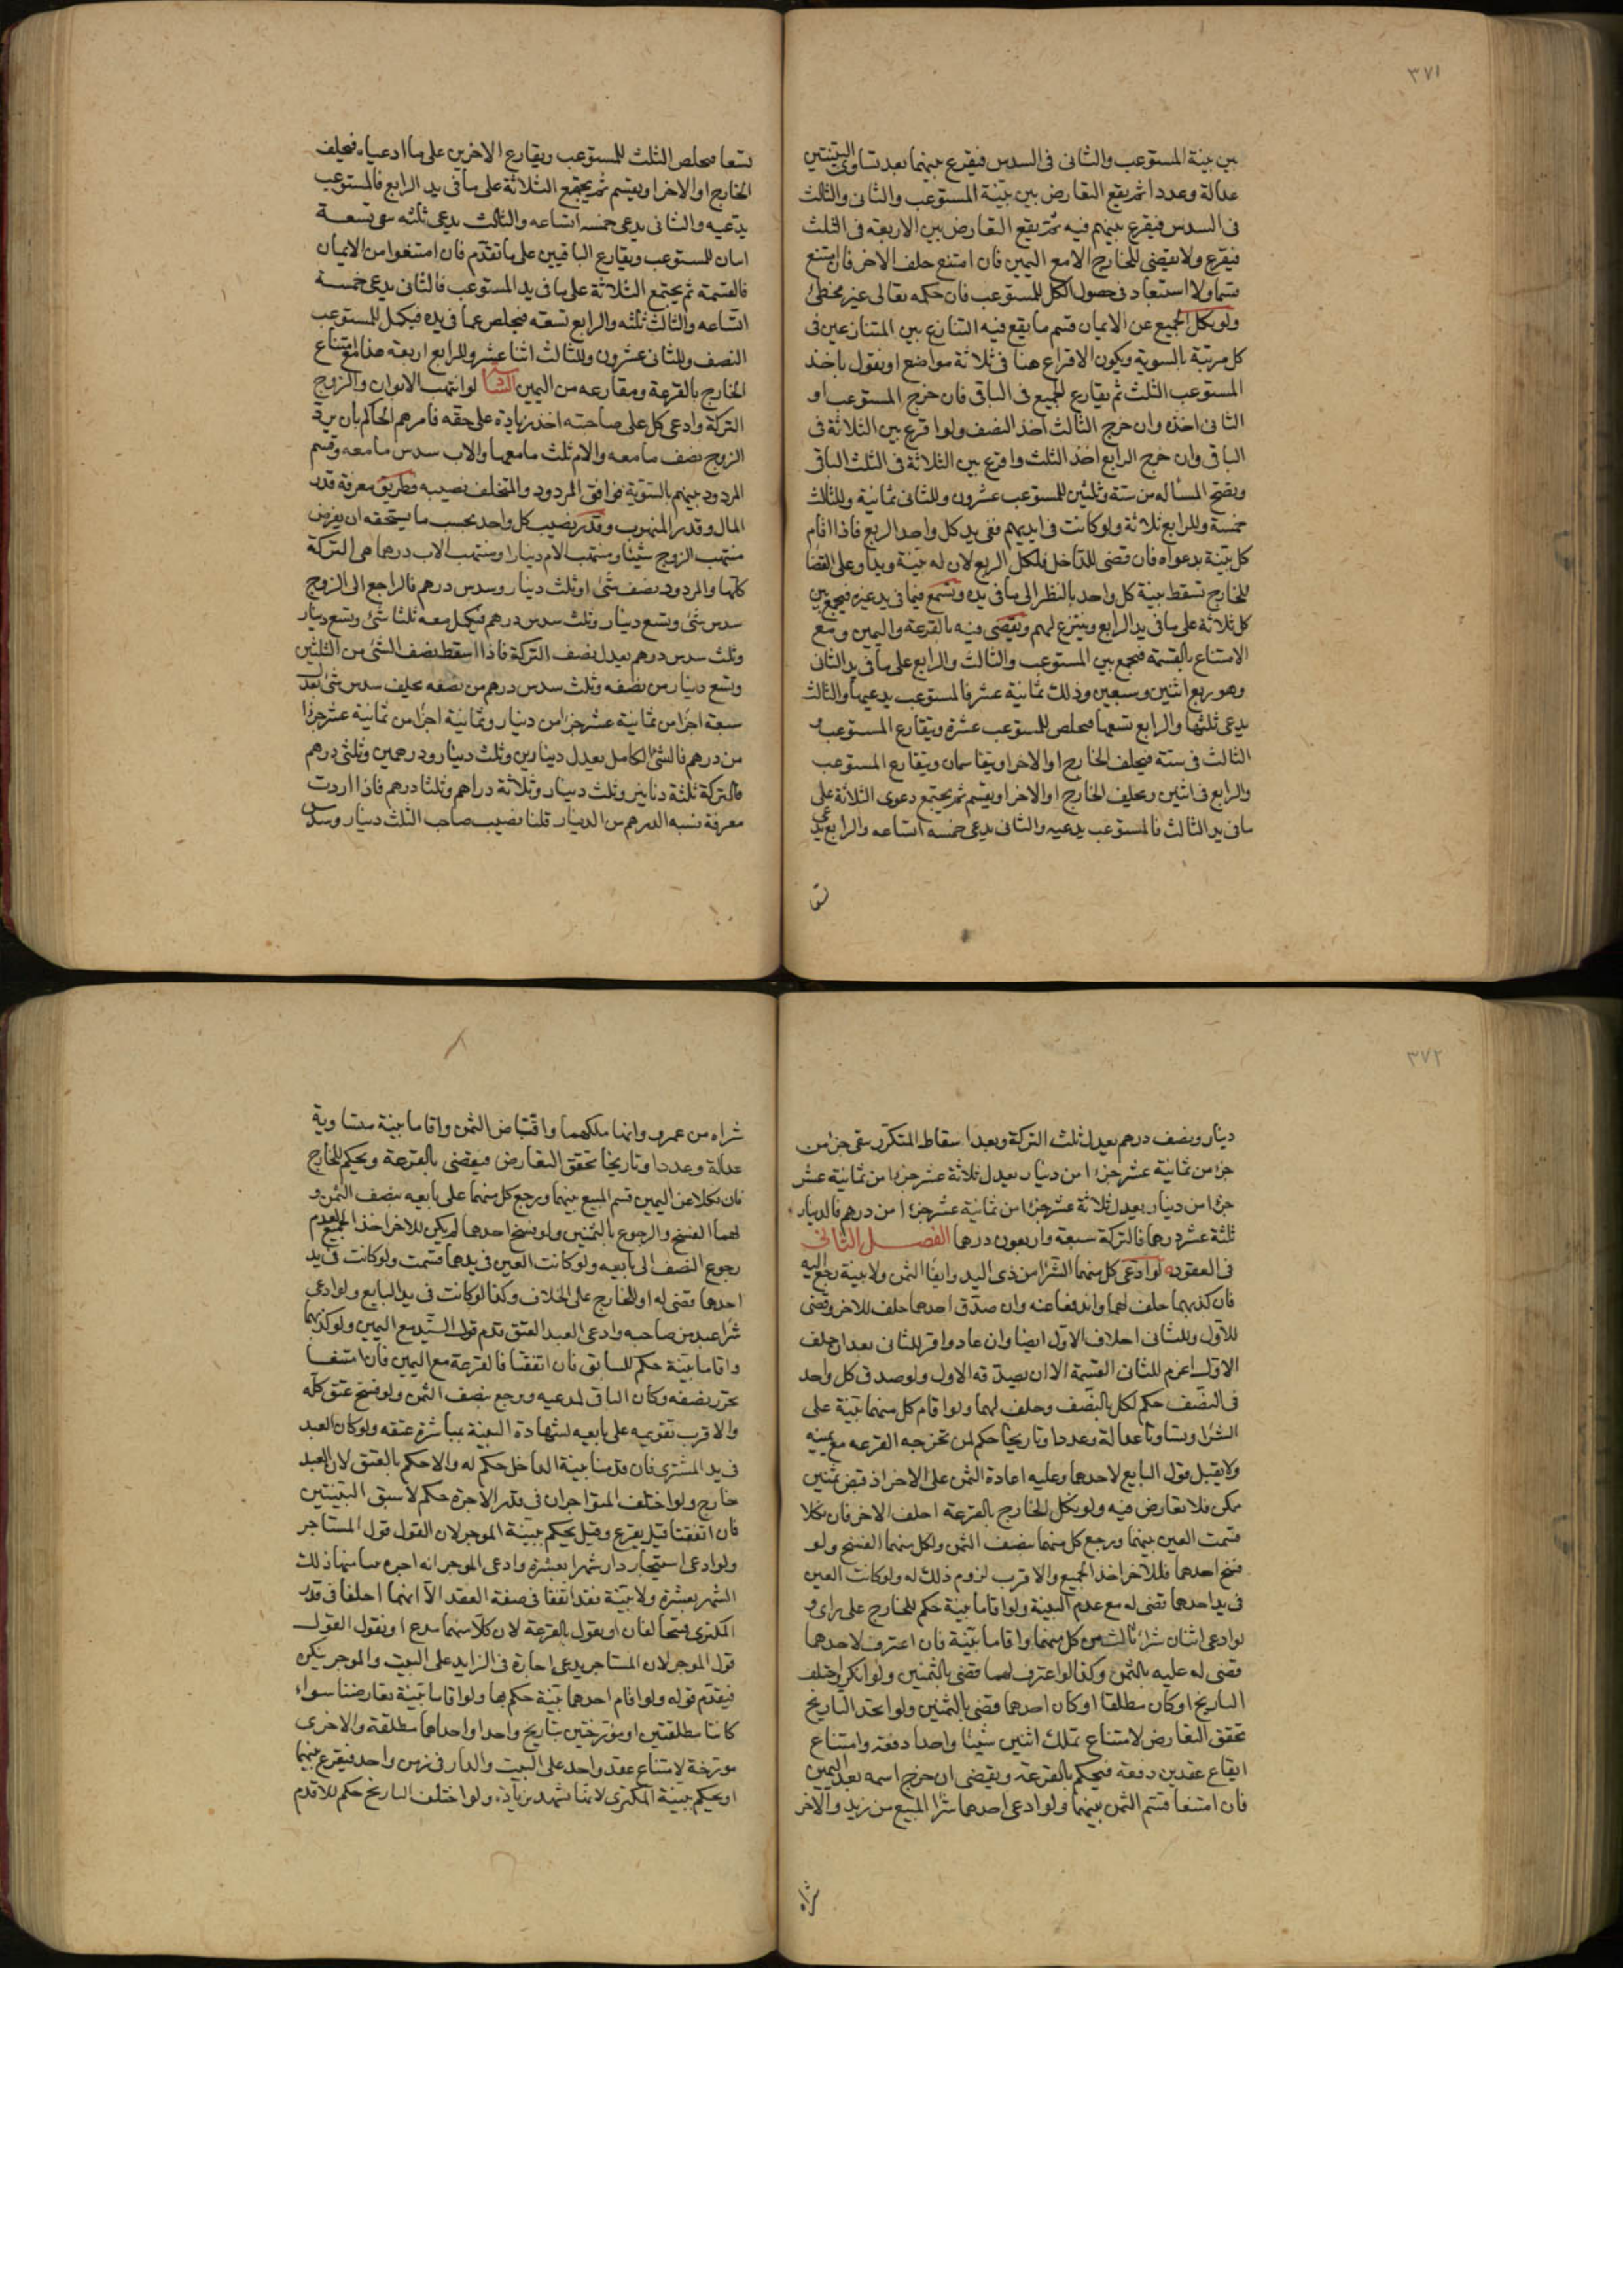 ٣٧١
بين بينة المستوعب والثانى فى السدس فيقرع بينهما بعد تساوى البينتين
عدالة وعددا ثم يقع التعارض بين بينة المستوعب والثانى والثالث
فى السدس فيقرع بينهم فيه ثم يقع التعارض بين الاربعة فى الثلث
فيقرع ولا يقضى للخارج الا مع اليمين فان امتنع حلف الاخر فان امتنع
قسم ولا استبعاد فى حصول الكل للمستوعب فان حكمه تعالى غير مخطئ
ولو نكل الجميع عن الايمان قسم ما يقع فيه التنازع بين المتنازعين فى
كل مرتبة بالسوية ويكون الاقراع هنا فى ثلاثة مواضع او نقول ياخذ
المستوعب الثلث ثم يقارع الجميع فى الباقى فان خرج المستوعب او
الثانى اخذه وان خرج الثالث اخذ النصف ولو اقرع بين الثلاثة فى
الباقى وان خرج الرابع اخذ الثلث واقرع بين الثلاثة فى الثلث الباقى
وتصح المساله من ستة وثلثين للمستوعب عشرون وللثانى ثمانية وللثالث
خمسة وللرابع ثلاثة ولو كانت فى ايديهم ففى يد كل واحد الربع فاذا اقام
كل بينة بدعواه فان قضى للداخل فلكل الربع لان له بينة ويدا وعلى القضا
للخارج تسقط بينة كل واحد بالنظر الى ما فى يده وتسمع فيما فى يد غيره فيجمع بين
كل ثلاثة على ما فى يد الرابع وينتزع لهم ويقضى فيه بالقرعة واليمين ومع
الامتناع بالقسمة فيجمع بين المستوعب والثالث والرابع على ما فى يد الثانى
وهو ربع اثنين وسبعين وذلك ثمانية عشر فالمستوعب يدعيها والثالث
يدعى ثلثها والرابع تسعها فيخلص للمستوعب عشرة ويتقارع المستوعب و
الثالث فى ستة فيحلف الخارج او الاخر او يتقاسمان ويتقارع المستوعب
والرابع فى اثنين ويحلف الخارج او الاخر او يقسم ثم يجتمع دعوى الثلاثة على
ما فى يد الثالث فالمستوعب يدعيه والثانى يدعى خمسة اتساعه والرابع يدعى
تسعا
تسعا فيخلص الثلث للمستوعب ويقارع الاخرين على ما ادعياه فيحلف
الخارج او الاخر او يقسم ثم يجتمع الثلاثة على ما فى يد الرابع فالمستوعب
يدعيه والثانى يدعى خمسة اتساعه والثالث يدعى ثلثه يبقى تسعة
اسان للمستوعب ويقارع الباقيين على ما تقدم فان امتنعوا من الايمان
فالقسمة ثم يجتمع الثلاثة على ما فى يد المستوعب فالثانى يدعى خمسة
اتساعه والثالث ثلثه والرابع تسعه فيخلص عما فى يده فيكمل للمستوعب
النصف وللثانى عشرون وللثالث اثنا عشر وللرابع اربعة هذا مع امتناع
الخارج بالقرعة ومقارعه من اليمين لو انتهب الابوان والزوج
التركة وادعى كل على صاحبته اخذ زيادة على حقه فامرهم الحاكم بان يرد
الزوج نصف ما معه والام ثلث ما معها والاب سدس ما معه وقسم
المردود بينهم بالسوية فوافق المردود والمتخلف نصيبه فطريق معرفة قدر
المال وقدر المنهوب وقدر نصيب كل واحد بحسب ما يستحقه ان يفرض
منتهب الزوج شيئا ومنتهب الام دينارا ومنتهب الاب درهما هى التركة
كلها والمردود نصف شئ او ثلث دينار وسدس درهم فالراجع الى الزوج
سدس شئ وتسع دينار وثلث سدس درهم فيكمل معه ثلثا شئ وتسع دينار
وثلث سدس درهم يعدل نصف التركة فاذا اسقط نصف الشئ من الثلثين
وتسع دينار من نصفه وثلث سدس درهم من نصفه يخلف سدس شئ يعدل
سبعة اجزا من ثمانية عشر جزا من دينار وثمانية اجزا من ثمانية عشر جزا
من درهم فالشئ الكامل يعدل دينارين وثلث دينار ودرهمين وثلثى درهم
فالتركة ثلثة دنانير وثلث دينار وثلاثة دراهم وثلثا درهم فاذا اردت
معرفة نسبه الدرهم من الدينار قلنا نصيب صاحب الثلث دينار وسدس
٣٧٢
دينار ونصف درهم يعدل ثلث التركة وبعد اسقاط المتكرر يبقى جزء من
جزء من ثمانية عشر جزءا من دينار يعدل ثلاثة عشر جزءا من ثمانية عشر
جزءا من دينار يعدل ثلاثة عشر جزءا من ثمانية عشر جزءا من درهم فالدينار
ثلثة عشر درهما فالتركة سبعة واربعون درهما الفصل الثانى
فى العقود لو ادعى كل منهما الشرا من ذى اليد وايفا الثمن ولا بينة رجع اليه
فان كذبهما حلف لهما واندفعا عنه وان صدق احدهما حلف للاخر وقضى
للاول وللثانى احلاف الاول ايضا وان عاد واقر للثانى بعد ان حلف
الاول اغرم للثانى القسمة الا ان يصدقه الاول ولو صدق كل واحد
فى النصف حكم لكل بالنصف وحلف لهما ولو اقام كل منهما بينة على
الشرا وتساوتا عدالة وعددا وتاريخا حكم لمن تخرجه القرعه مع يمينه
ولا يقبل قول البايع لاحدهما وعليه اعادة الثمن على الاخر اذ قبض ثمنين
ممكن فلا تعارض فيه ولو نكل الخارج بالقرعة احلف الاخر فان نكلا
قسمت العين بينهما ويرجع كل منهما بنصف الثمن ولكل منهما الفسخ ولو
فسخ احدهما فللاخر اخذ الجميع والاقرب لزوم ذلك له ولو كانت العين
فى يد احدهما قضى له مع عدم البينة ولو اقاما بينة حكم للخارج على راى و
لو ادعى اثنان شراء ثالث من كل منهما واقاما بينة فان اعترف لاحدهما
قضى له عليه بالثمن وكذا لو اعترف لهما قضى بالثمنين ولو انكر واختلف
التاريخ او كان مطلقا او كان احدهما قضى بالثمنين ولو اتحد التاريخ
تحقق التعارض لامتناع تملك اثنين شيئا واحدا دفعة وامتناع
ايقاع عقدين دفعة فيحكم بالقرعة ويقضى لمن خرج اسمه بعد اليمين
فان امتنعا قسم الثمن بينهما ولو ادعى احدهما شرا المبيع من زيد والاخر
شراه
شراه من عمرو وانهما ملكهما واقتباض الثمن واقاما بينة متساوية
عدالة وعددا وتاريخا تحقق التعارض فيقضى بالقرعة ويحكم للخارج
فان نكلا عن اليمين قسم المبيع بينهما ويرجع كل منهما على بايعه بنصف الثمن و
لهما الفسخ والرجوع بالثمنين ولو فسخ احدهما لم يكن للاخر اخذ الجميع لعدم
رجوع النصف الى بايعه ولو كانت العين فى يدهما قسمت ولو كانت فى يد
احدهما قضى له او للخارج على الخلاف وكذا لو كانت فى يد البايع ولو ادعى
شرا عبد من صاحبه وادعى العبد العتق قدم قول السيد مع اليمين ولو كذبهما
واقاما بينة حكم للسابق فان اتفقتا فالقرعة مع اليمين فان امتنعا
تحرر نصفه وكان الباقى لمدعيه ويرجع بنصف الثمن ولو فسخ عتق كله
والاقرب تقويمه على بايعه لشهادة البينة بمباشرة عتقه ولو كان العبد
فى يد المشترى فان قدمنا بينة الداخل حكم له والا حكم بالعتق لان العبد
خارج ولو اختلف المتواجران فى قدر الاجرة حكم لاسبق البينتين
فان اتفقتا قيل يقرع وقيل يحكم ببينة الموجر لان القول قول المستاجر
ولو ادعى استيجار دار شهرا بعشرة وادعى الموجر انه اجره بيتا منها ذلك
الشهر بعشرة ولا بينة فقد اتفقا فى صفة العقد الا انهما اختلفا فى قدر
المكترى فيتحالفان او يقول بالقرعة لان كلا منهما مدع او نقول القول
قول الموجر لان المستاجر يدعى اجارة فى الزايد على البيت والموجر ينكره
فيقدم قوله ولو اقام احدهما بينة حكم بها ولو اقاما بينة تعارضتا سواء
كانتا مطلقتين او مؤرختين بتاريخ واحد او احداهما مطلقة والاخرى
مورخة لامتناع عقد واحد على البيت والدار فى زمن واحد فيقرع بينهما
او يحكم ببينة المكترى لانها تشهد بزيادة ولو اختلف التاريخ حكم للاقدم